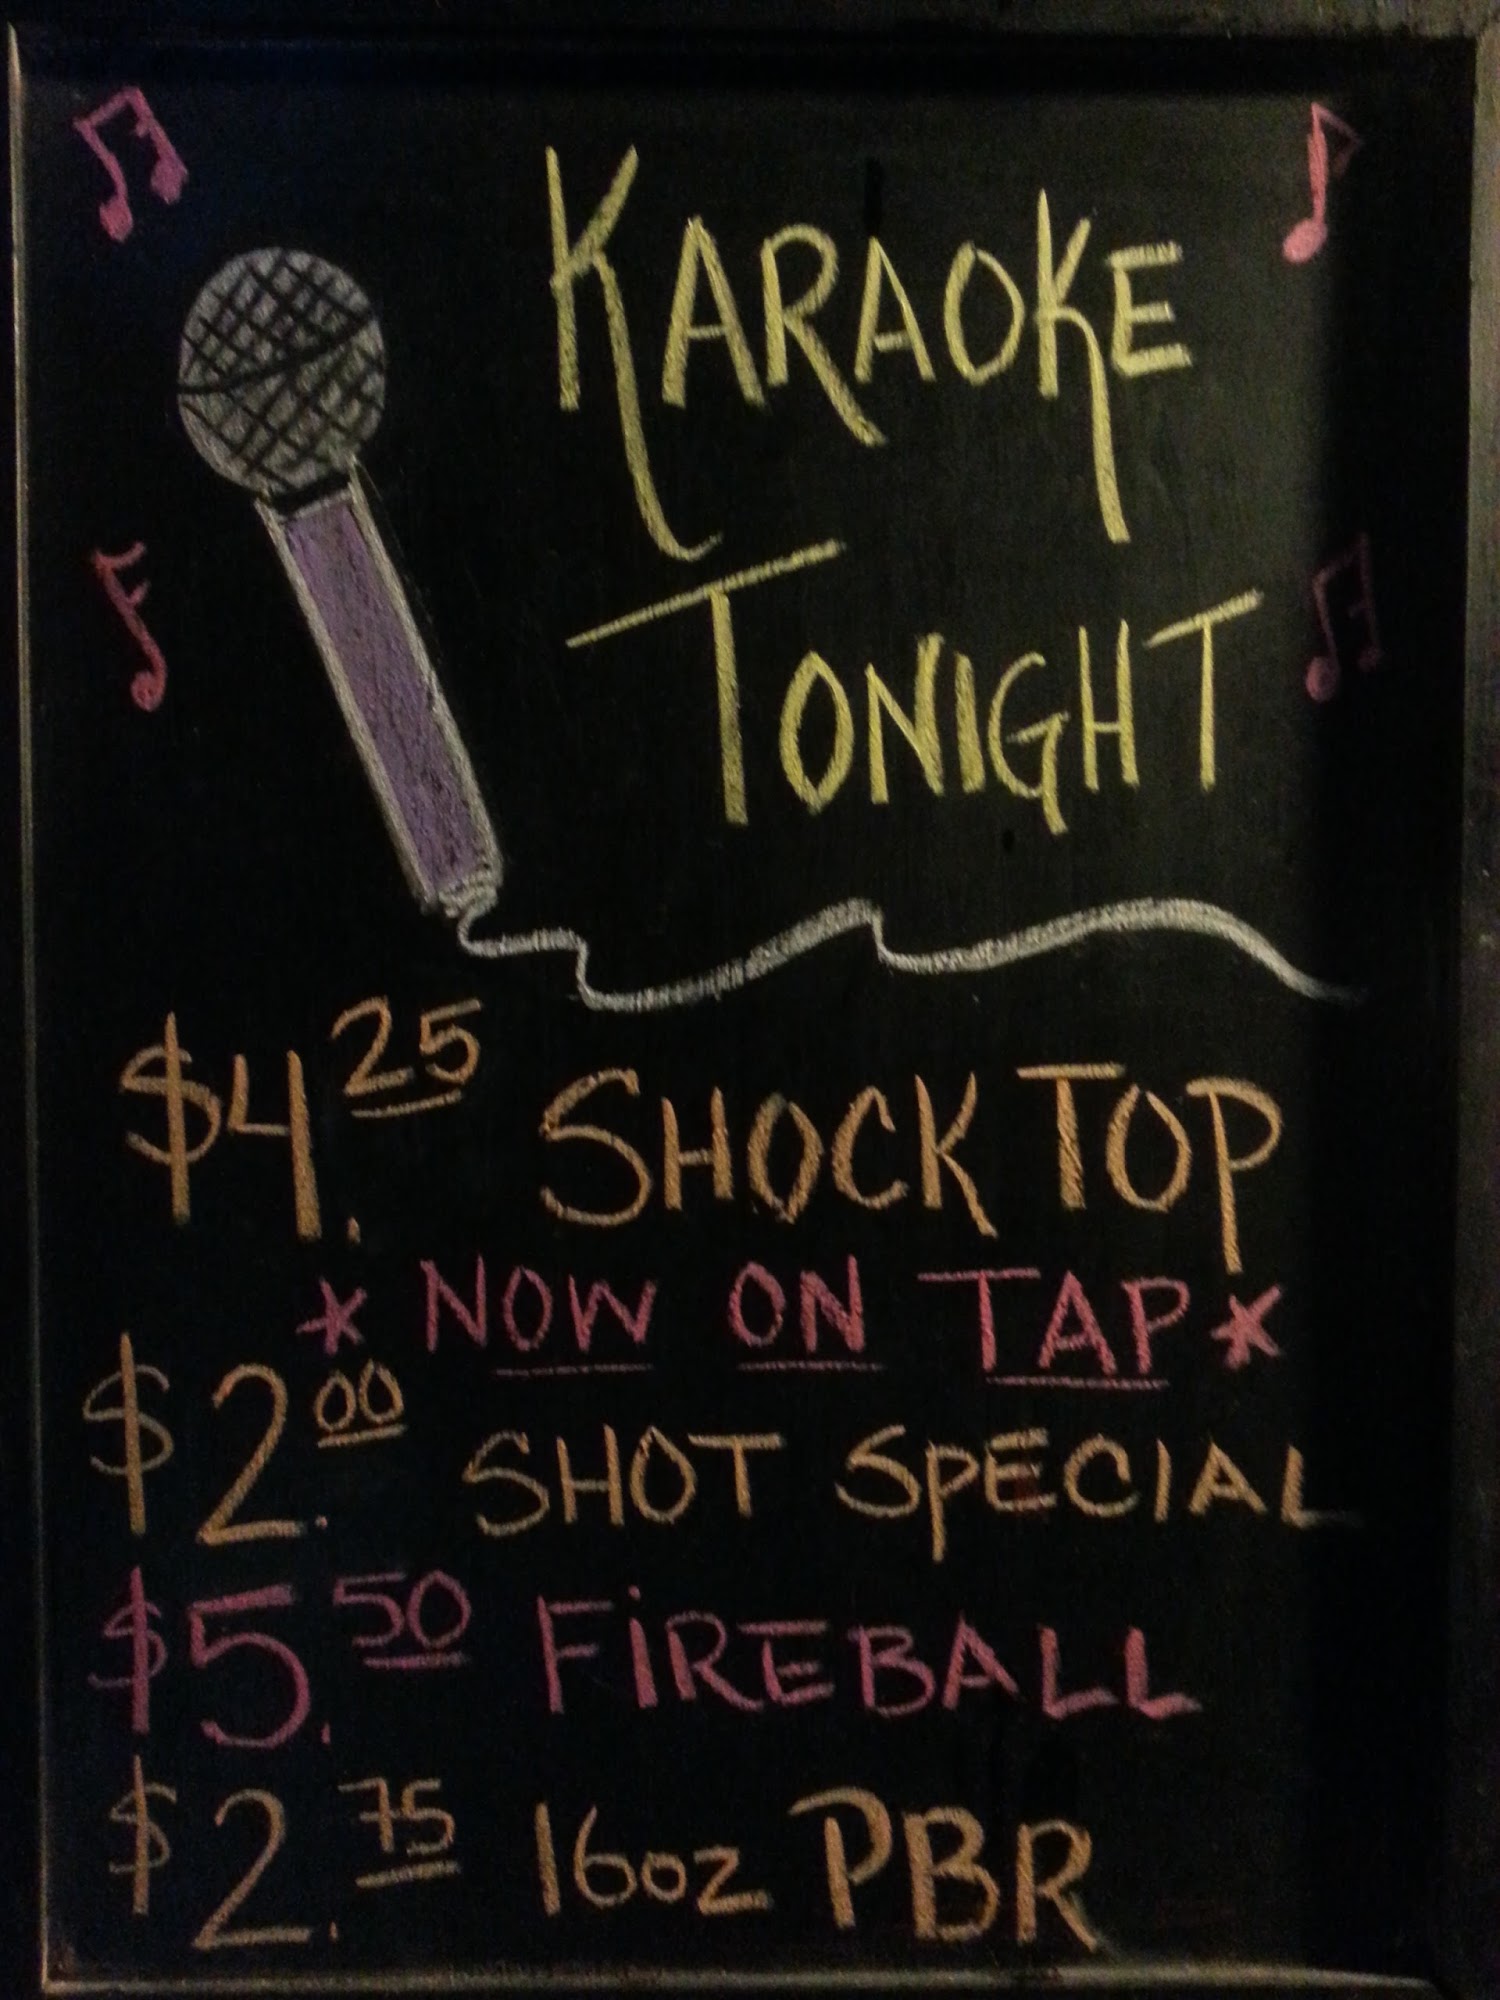 KARAOKE
TONIGHT
$4.25 SHOCK TOP
* NOW ON TAP *
$2.00 SHOT SPECIAL
$5.50 FiREBALL
$2.75 16oz PBR